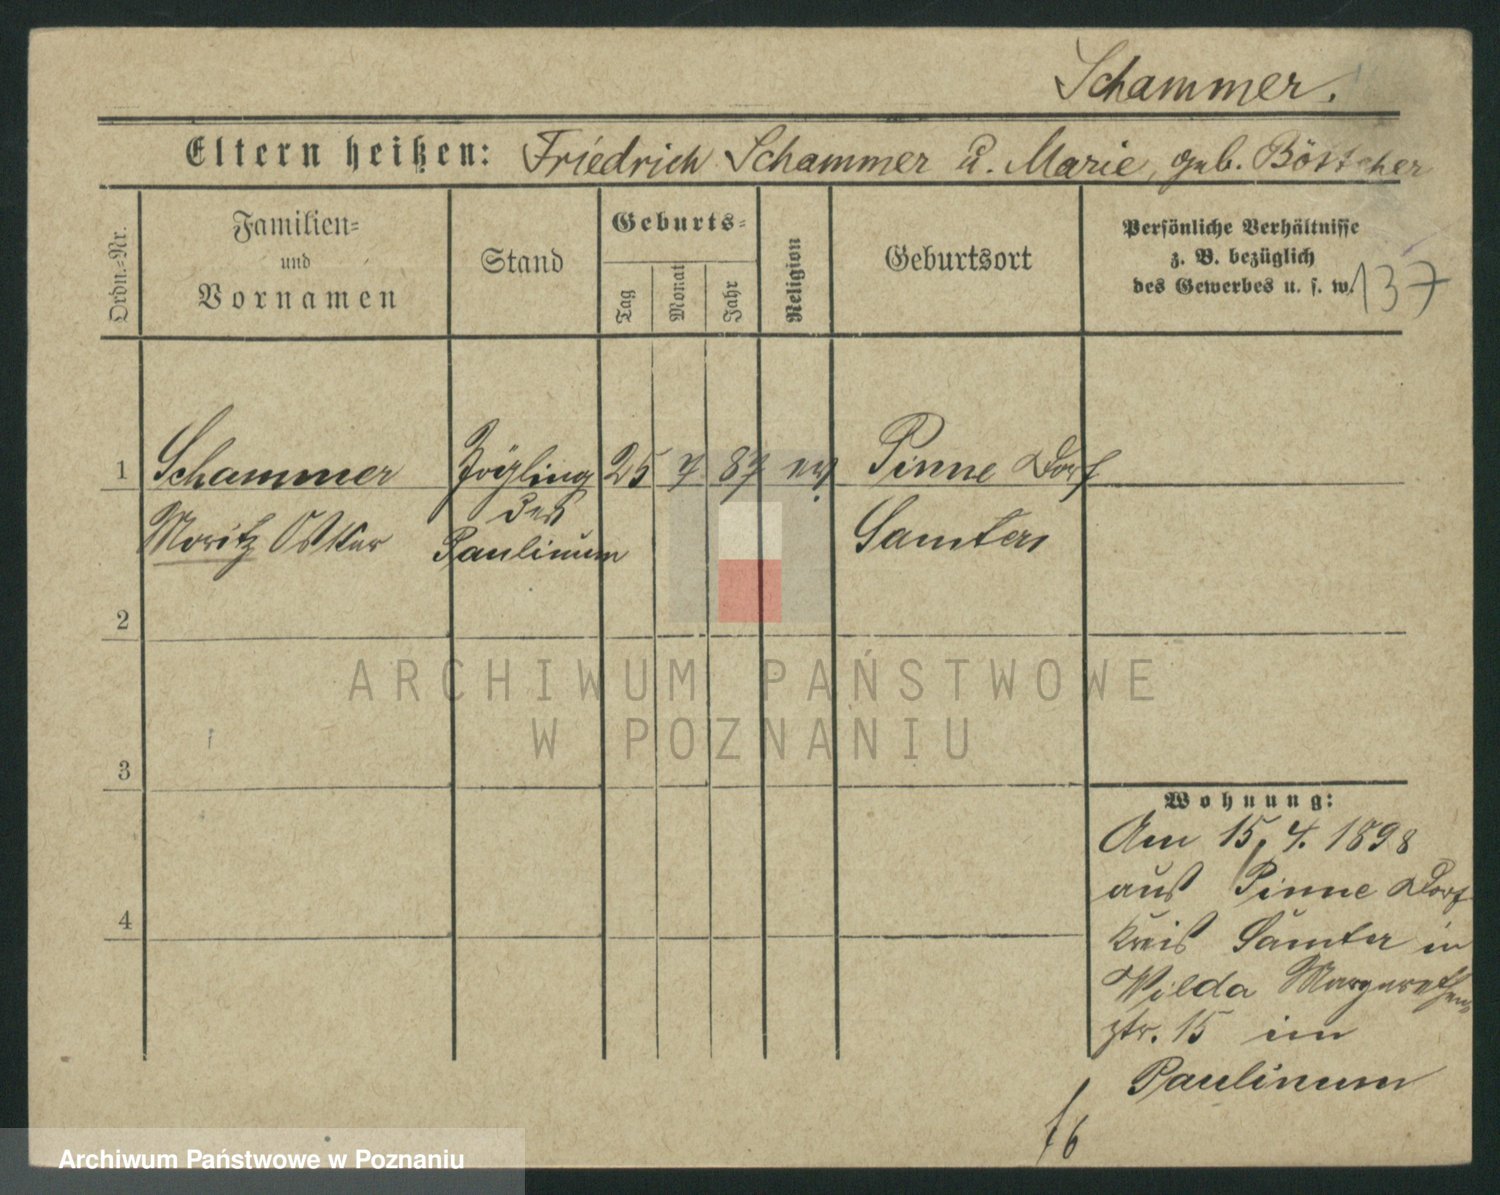 Schammer.
Eltern heißen: Friedrich Schammer u. Marie, geb. Böttcher
Ordn.-Nr.
Familien-
und
Vornamen
Stand
Geburts-
Tag
Monat
Jahr
Religion
Geburtsort
Persönliche Verhältnisse
z. B. bezüglich
des Gewerbes u. s. w.
137
1 Schammer Zögling 25 7 87 ev. Pinne Dorf
Moritz Oskar des Samter
Paulinum
2
3
4
Wohnung:
Am 15. 4. 1898
aus Pinne Dorf
Kreis Samter in
Wilda Margarethen
str. 15 im
Paulinum
ARCHIWUM PAŃSTWOWE
W POZNANIU
Archiwum Państwowe w Poznaniu